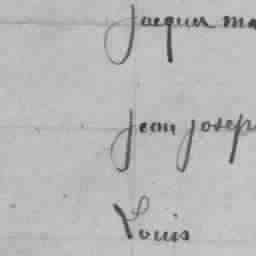 Jacques ma
Jean Joseph
Louis